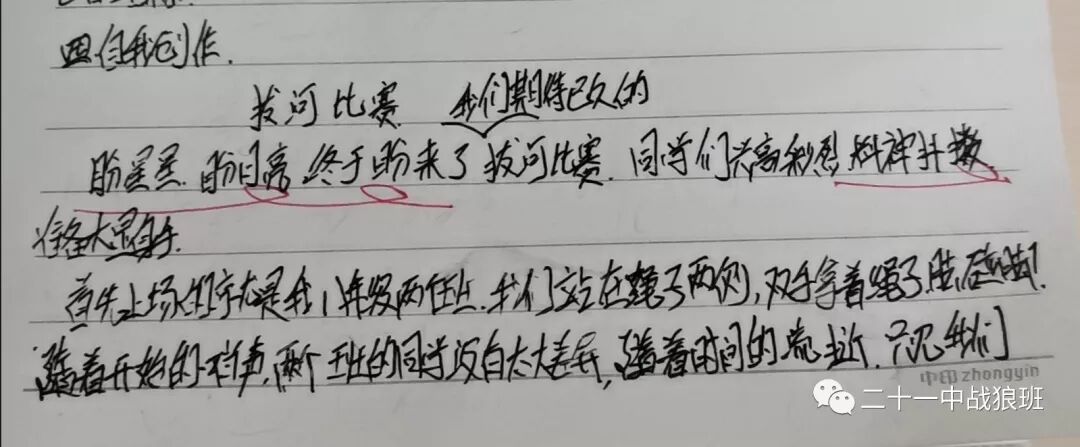 四自我创作.
拔河比赛 我们期待已久的
盼星星.盼月亮 终于盼来了拔河比赛.同学们兴高彩烈 精神抖擞.
准备大显身手.
首先上场的就是我们年级两位班.我们站在绳子两侧,双手拿着绳子
随着开始的一声,两个班的同学没有太大差异,随着时间的流逝.只见我们
中印 zhongyin
二十一中战狼班